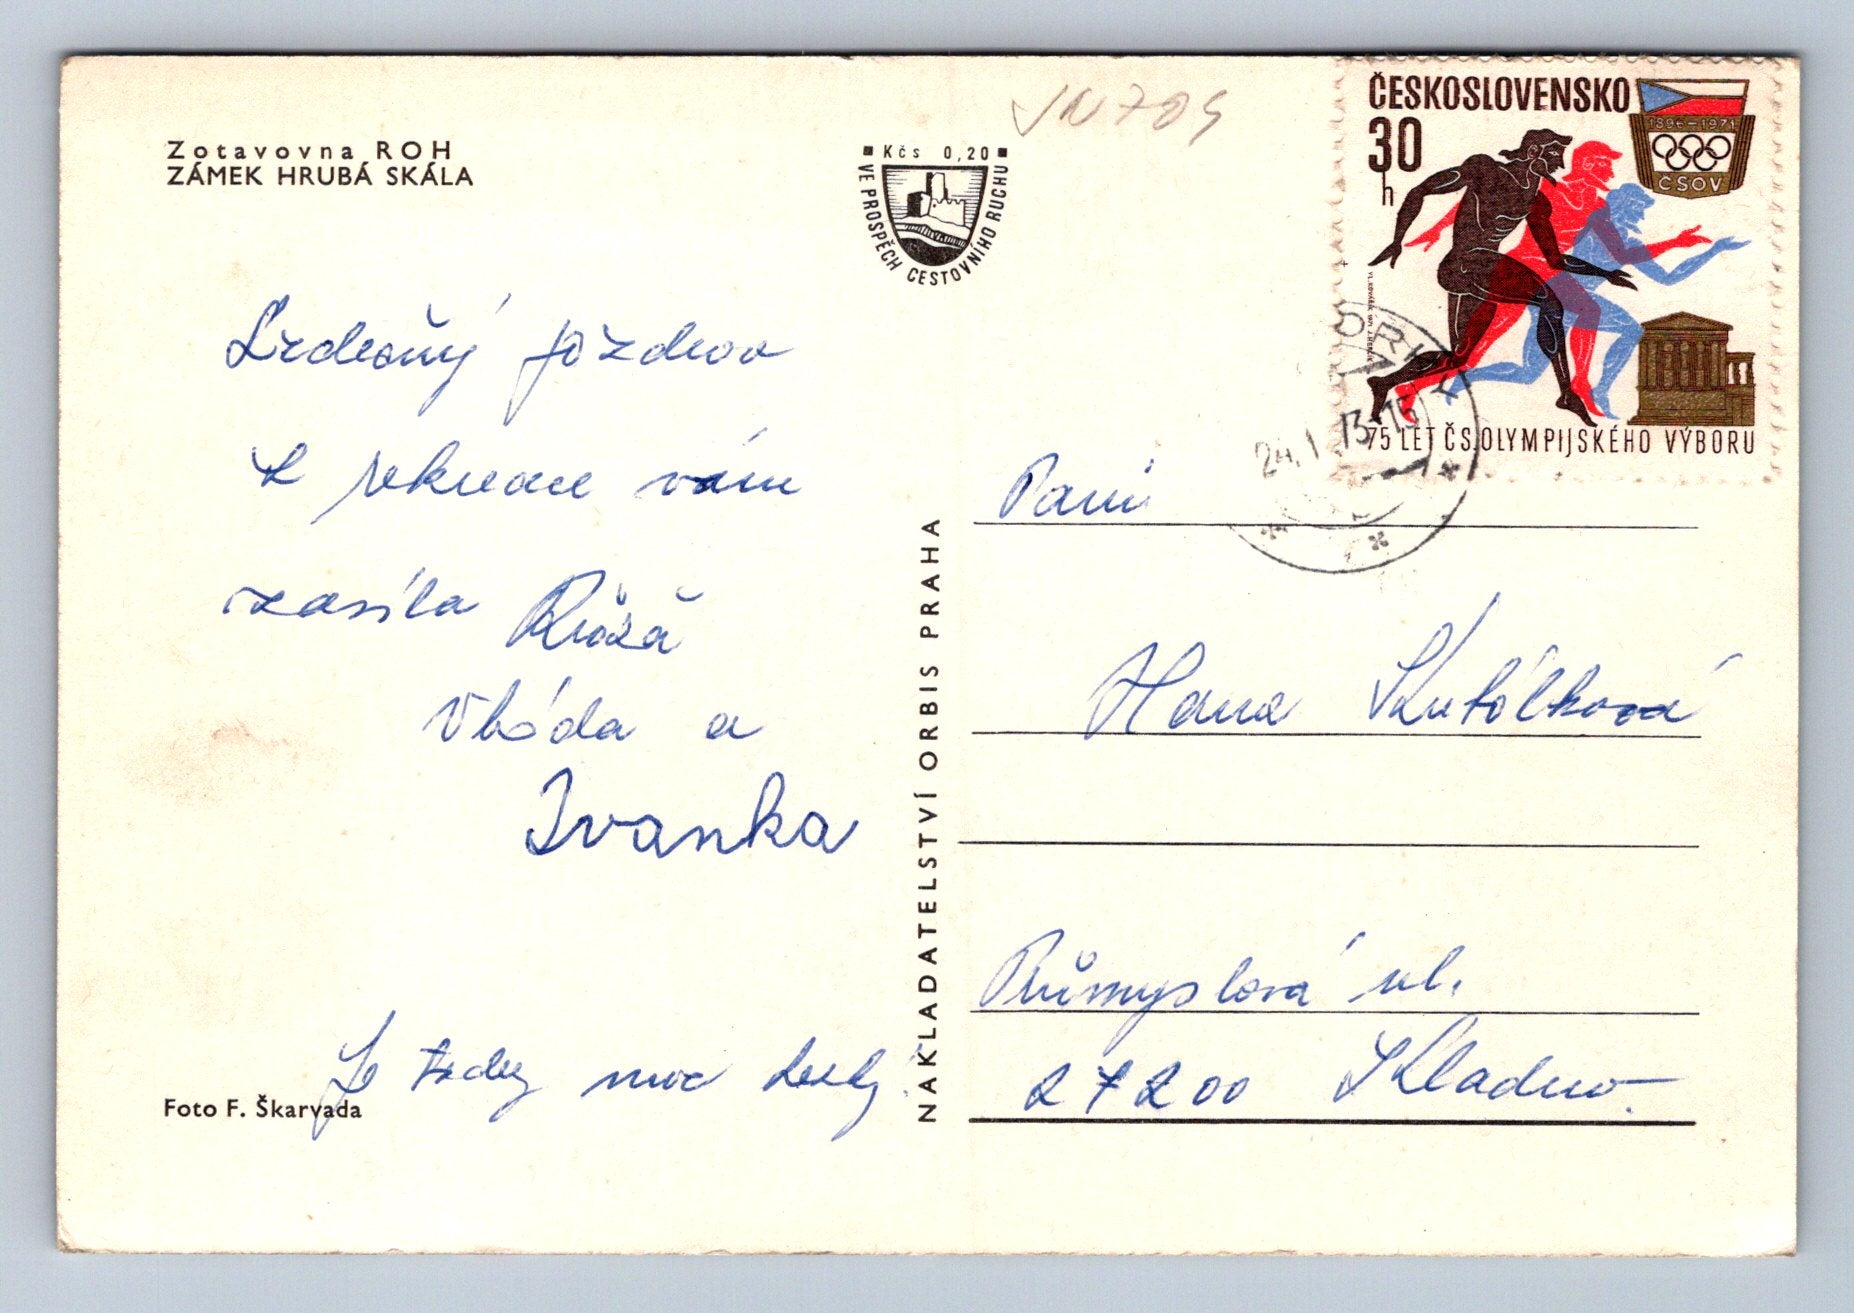 Zotavovna ROH
ZÁMEK HRUBÁ SKÁLA
Kčs 0,20
VE PROSPĚCH CESTOVNÍHO RUCHU
ČESKOSLOVENSKO
30
h
1896-1971
ČSOV
75 LET ČS. OLYMPIJSKÉHO VÝBORU
24. 1. 73-15
Srdečný pozdrav
z rekreace vám
zasíla Růža
Vláďa a
Ivanka
Je tady moc hezky!
Foto F. Škarvada
NAKLADATELSTVÍ ORBIS PRAHA
Paní
Hana
Průmyslová ul.
27200 Kladno.